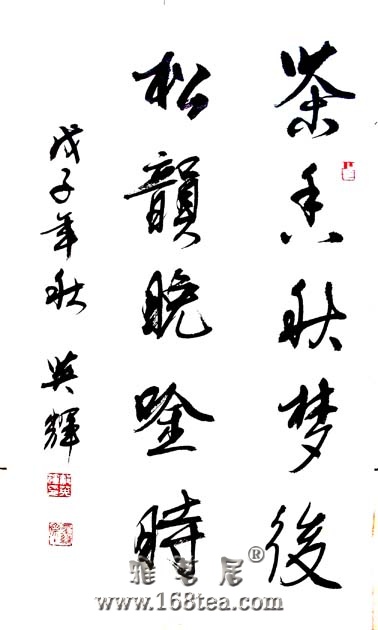 茶香秋梦後
松韻晚唫時
戊子年秋 英輝
雅茗居®
www.168tea.com